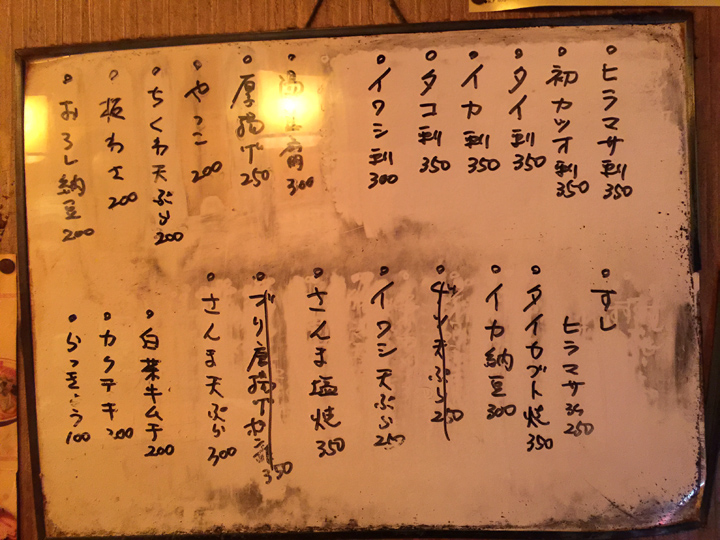 ヒラマサ刺 350
初カツオ刺 350
タイ刺 350
イカ刺 350
タコ刺 350
イワシ刺 300
湯豆腐 300
厚揚げ 250
やっこ 200
ちくわ天ぷら 200
板わさ 200
おろし納豆 200
すし
ヒラマサ 250
タイカブト焼 350
イカ納豆 300
天ぷら 250
イワシ天ぷら 250
さんま塩焼 350
ぶり唐揚げ 350
さんま天ぷら 300
白菜キムチ 200
カクテキ 200
らっきょう 100